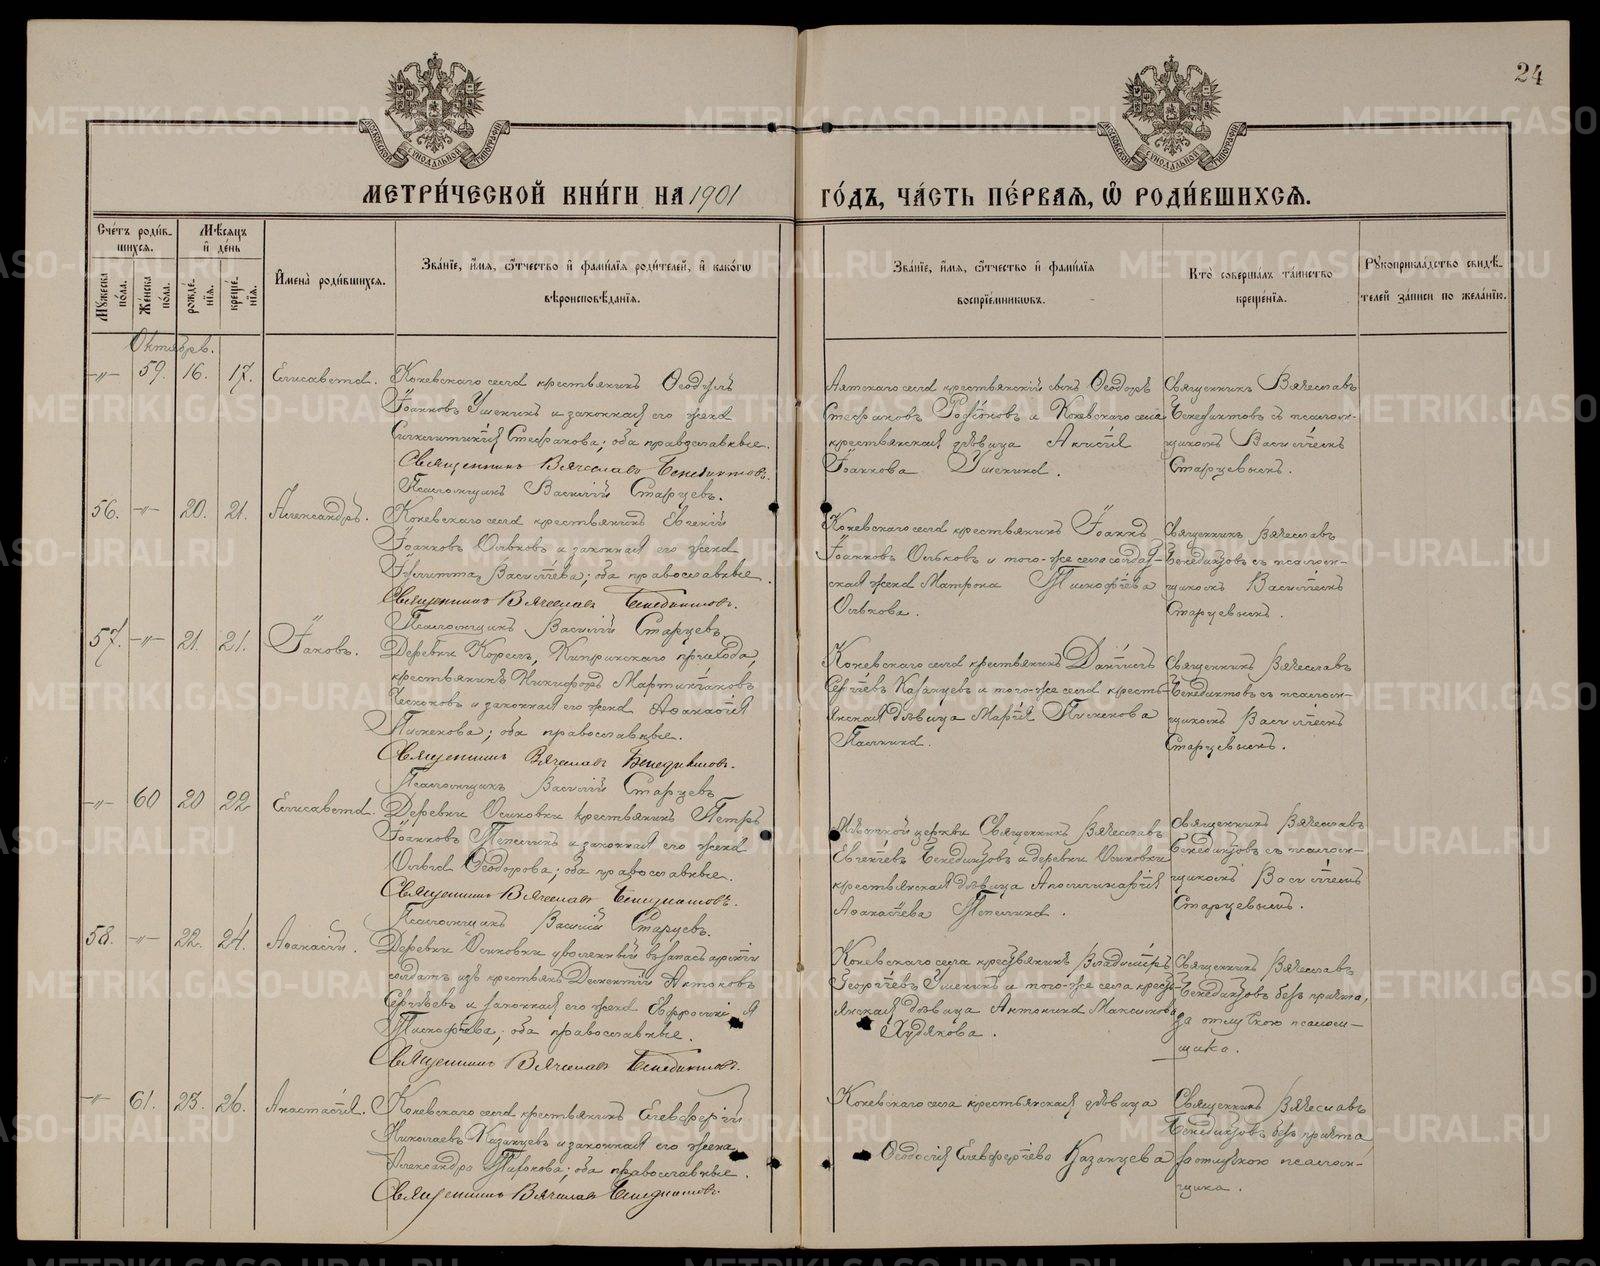 24
МОСКОВСКОЙ СѴНОДАЛЬНОЙ ТИПОГРАФІИ
МОСКОВСКОЙ СѴНОДАЛЬНОЙ ТИПОГРАФІИ
МЕТРИ́ЧЕСКОЙ КНИ́ГИ НА 1901 ГО́ДЪ, ЧА́СТЬ ПЕ́РВАѦ, Ѡ҆ РОДИ́ВШИХСѦ.
Сче́тъ роди́в-
шихся.
Мѣ́сяцъ
и҆ де́нь
Мꙋ́жеска по́ла.
Же́нска по́ла.
рожде́-
нїя.
креще́-
нїя.
И҆мена̀ роди́вшихся.
Зва́нїе, и҆́мя, ѻ҆́тчество и҆ фами́лїя роди́телей, и҆ како́гѡ
вѣроисповѣ́данїя.
Зва́нїе, и҆́мя, ѻ҆́тчество и҆ фами́лїя
воспрїе́мниковъ.
Кто̀ соверша́лъ та́инство
креще́нїя.
Рꙋкоприкла́дство свидѣ́-
телей за́писи по жела́нїю.
Октябрь.
-"- 59. 16. 17. Елисавета.
Коневскаго села крестьянинъ Ѳеодулъ
Іоанновъ Ушенинъ и законная его жена
Синклитикія Стефанова; оба православные.
Священникъ Вячеславъ Бенедиктовъ.
Псаломщикъ Василій Старцевъ.
Аятскаго села крестьянскій сынъ Ѳеодоръ
Стефановъ и Коневскаго села
крестьянская дѣвица Анисія
Іоаннова Ушенина.
Священникъ Вячеславъ
Бенедиктовъ съ псалом-
щикомъ Василіемъ
Старцевымъ.
56. -"- 20. 21. Александръ.
Коневскаго села крестьянинъ Евгеній
Іоанновъ Ольковъ и законная его жена
Іулитта Васильева; оба православные.
Священникъ Вячеславъ Бенедиктовъ.
Псаломщикъ Василій Старцевъ.
Коневскаго села крестьянинъ Іоаннъ
Іоанновъ Ольковъ и того-же села солдат-
ская жена Матрона Тимофіева
Олькова.
Священникъ Вячеславъ
Бенедиктовъ съ псалом-
щикомъ Василіемъ
Старцевымъ.
57. -"- 21. 21. Іаковъ.
Деревни Корелъ, Кипринскаго прихода,
крестьянинъ Никифоръ Мартиніановъ
и законная его жена Аѳанасія
Пименова; оба православные.
Священникъ Вячеславъ Бенедиктовъ.
Псаломщикъ Василій Старцевъ
Коневскаго села крестьянинъ Даніилъ
Сергіевъ Казанцевъ и того-же села кресть-
янская дѣвица Марія Пименова
Палкина.
Священникъ Вячеславъ
Бенедиктовъ съ псалом-
щикомъ Василіемъ
Старцевымъ.
-"- 60 20 22 Елисавета.
Деревни Осиновки крестьянинъ Петръ
Іоанновъ Тепикинъ и законная его жена
Ольга Ѳеодорова; оба православные.
Священникъ Вячеславъ Бенедиктовъ.
Псаломщикъ Василій Старцевъ.
Мѣстной церкви Священникъ Вячеславъ
Евгеніевъ Бенедиктовъ и деревни Осиновки
крестьянская дѣвица Аполлинарія
Аѳанасіева Тепикина.
Священникъ Вячеславъ
Бенедиктовъ съ псалом-
щикомъ Василіемъ
Старцевымъ.
58. -"- 22. 24. Аѳанасій.
Деревни Осиновки уволенный въ запасъ арміи
солдатъ изъ крестьянъ Дементій Антоновъ
Сергѣевъ и законная его жена Евфросинія
Тимофіева; оба православные.
Священникъ Вячеславъ Бенедиктовъ.
Коневскаго села крестьянинъ Владиміръ
Георгіевъ Ушенинъ и того-же села кресть-
янская дѣвица Антонина Максимова
Худякова.
Священникъ Вячеславъ
Бенедиктовъ безъ причта,
за отлучкою псалом-
щика.
-"- 61. 23. 26. Анастасія.
Коневскаго села крестьянинъ Елевферій
Николаевъ Казанцевъ и законная его жена
Александра Тихонова; оба православные.
Священникъ Вячеславъ Бенедиктовъ.
Коневскаго села крестьянская дѣвица
Ѳеодосія Елевферіева Казанцева
Священникъ Вячеславъ
Бенедиктовъ безъ причта
за отлучкою псалом-
щика.
METRIKI.GASO-URAL.RU